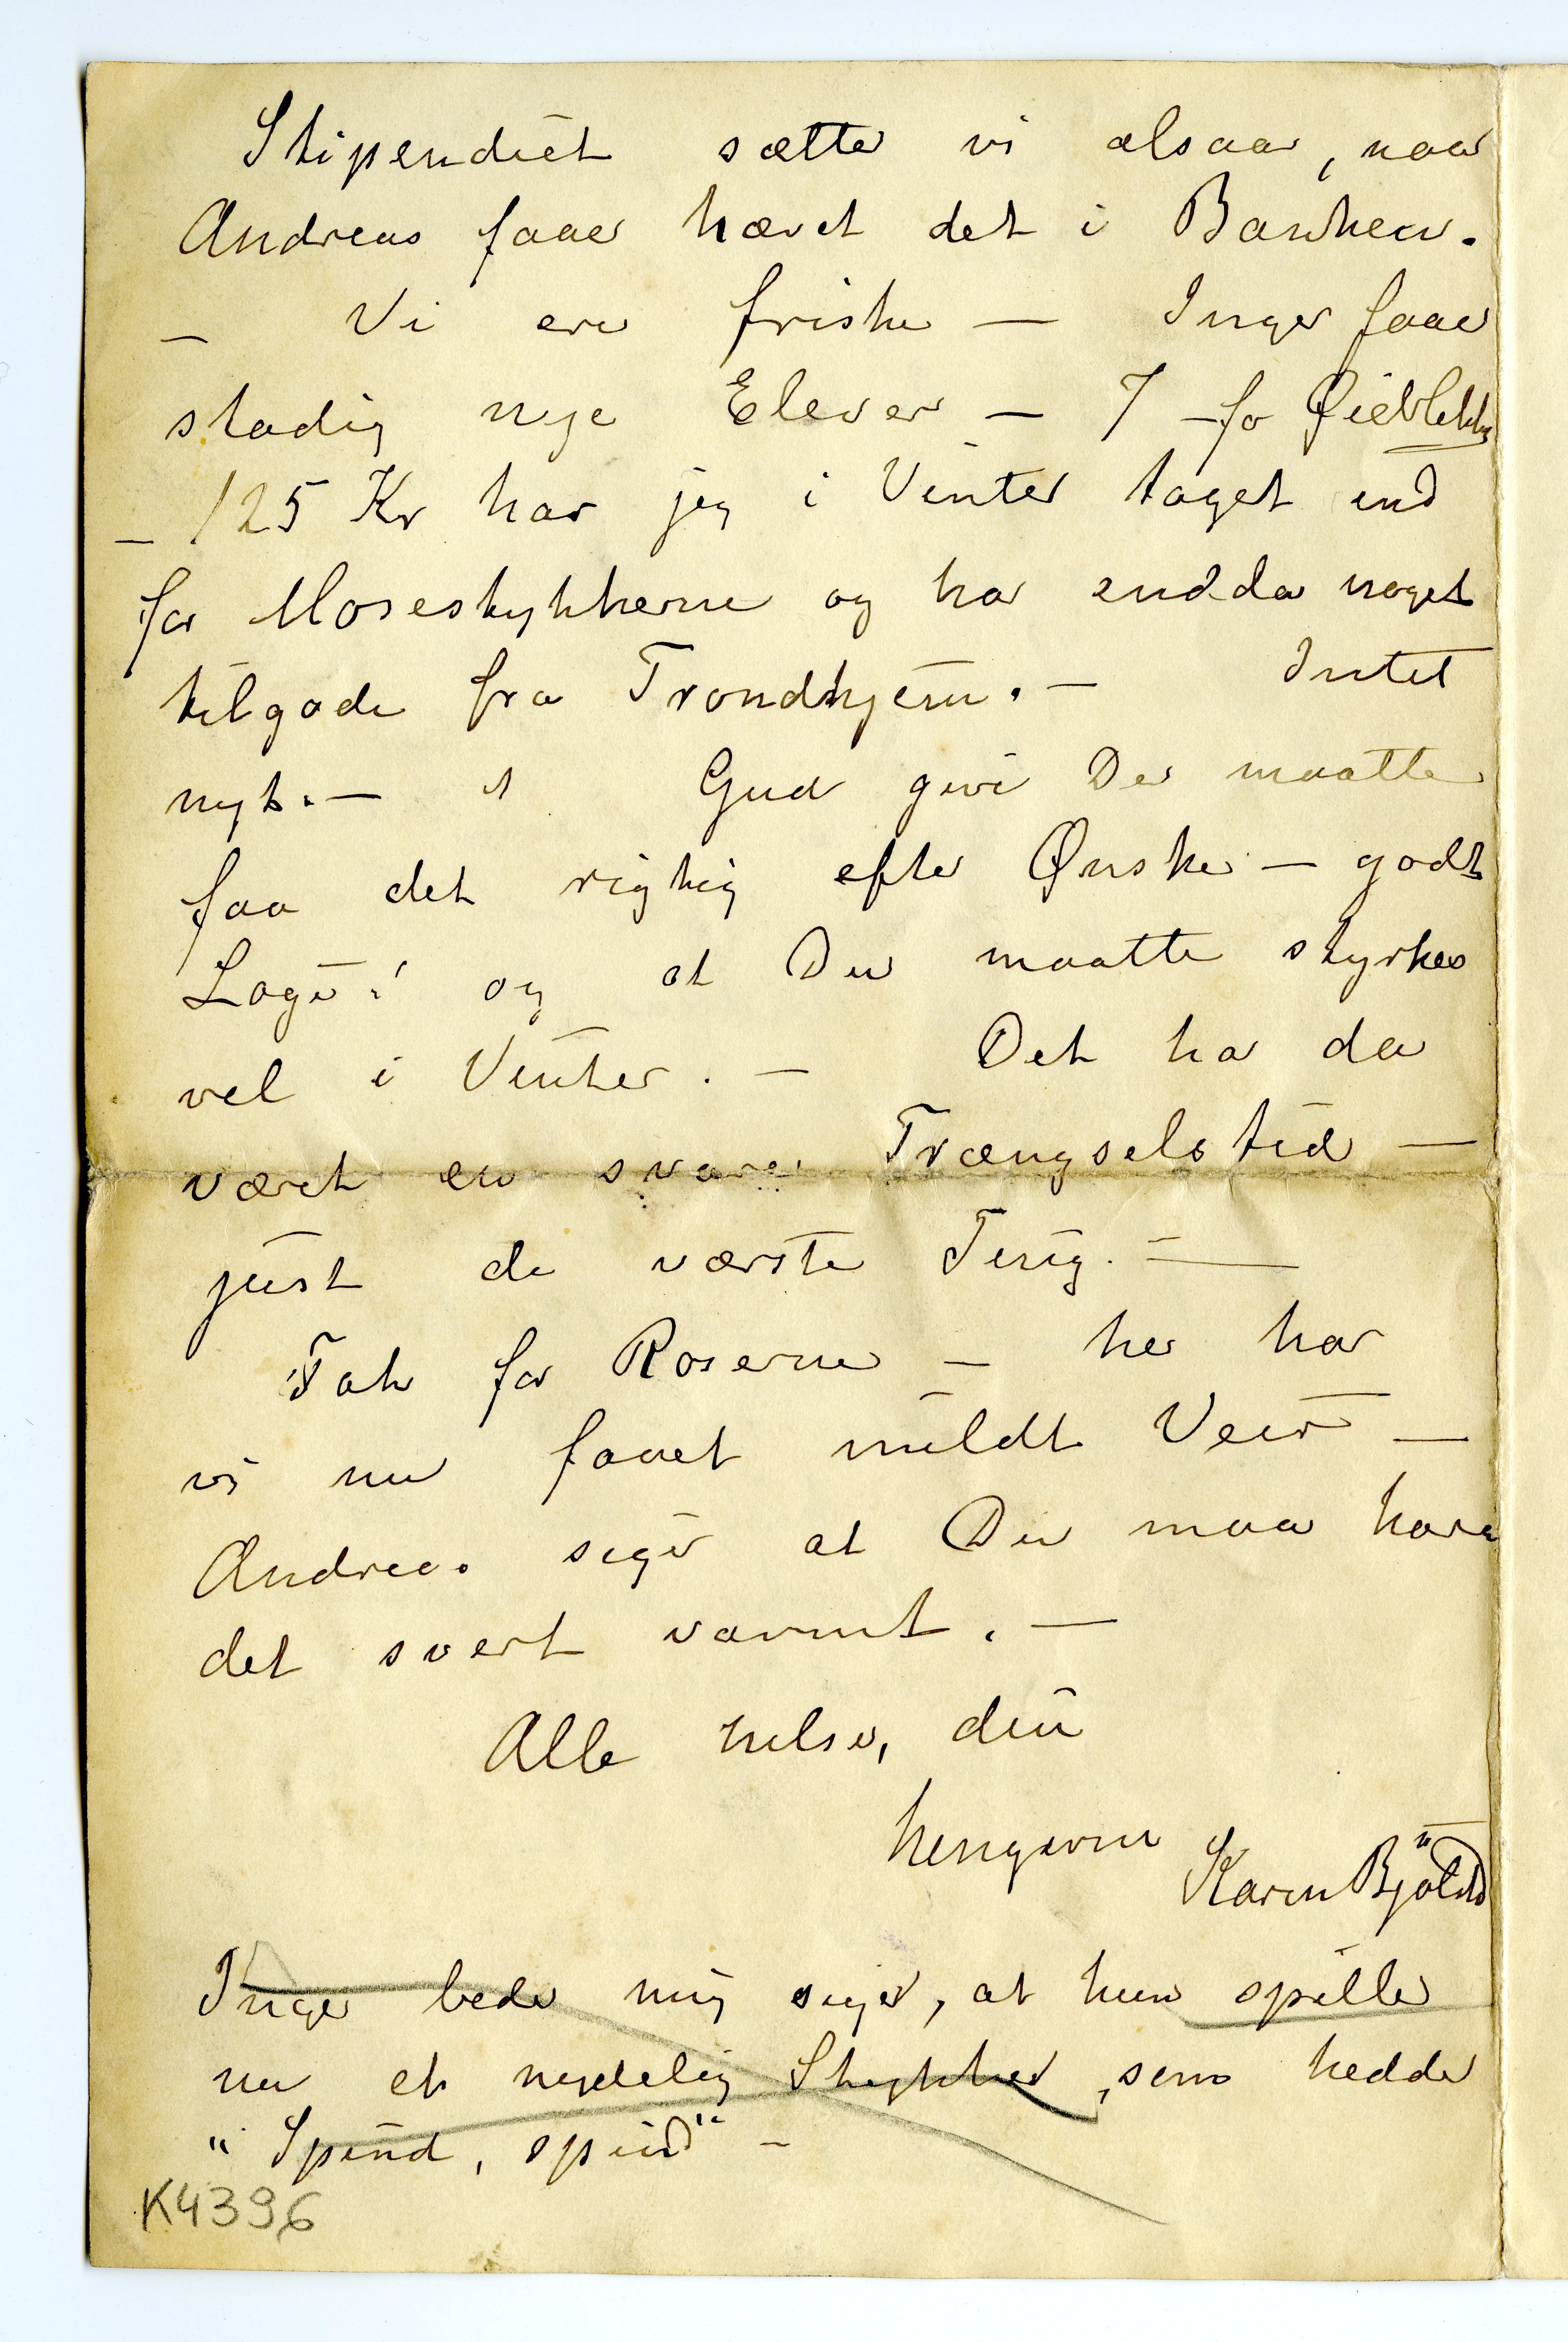 Stipendiet sætter vi alsaa, naar
Andreas faaer hævet det i Banken.
– Vi ere friske – Inger faaer
stadig nye Elever – 7 – for Øieblikket
– 125 Kr har jeg i Vinter taget ind
for Mosestykkerne og har endda noget
tilgode fra Trondhjem. – Intet
nyt. – Gud give De maatte
faa det rigtig efter Ønske – godt
Logi! og at Du maatte styrkes
vel i Vinter. – Det har da
været en svær Trængselstid –
just de værste Ting. –
Tak for Roserne – her har
vi nu faaet mildt Veir –
Andreas siger at Du maa have
det svert varmt. –
Alle hilser, din
hengivne Karen Bjølstad
Inger beder mig sige, at hun spiller
nu et nydelig Stykke, som hedder
"Spind, spind" –
K4396